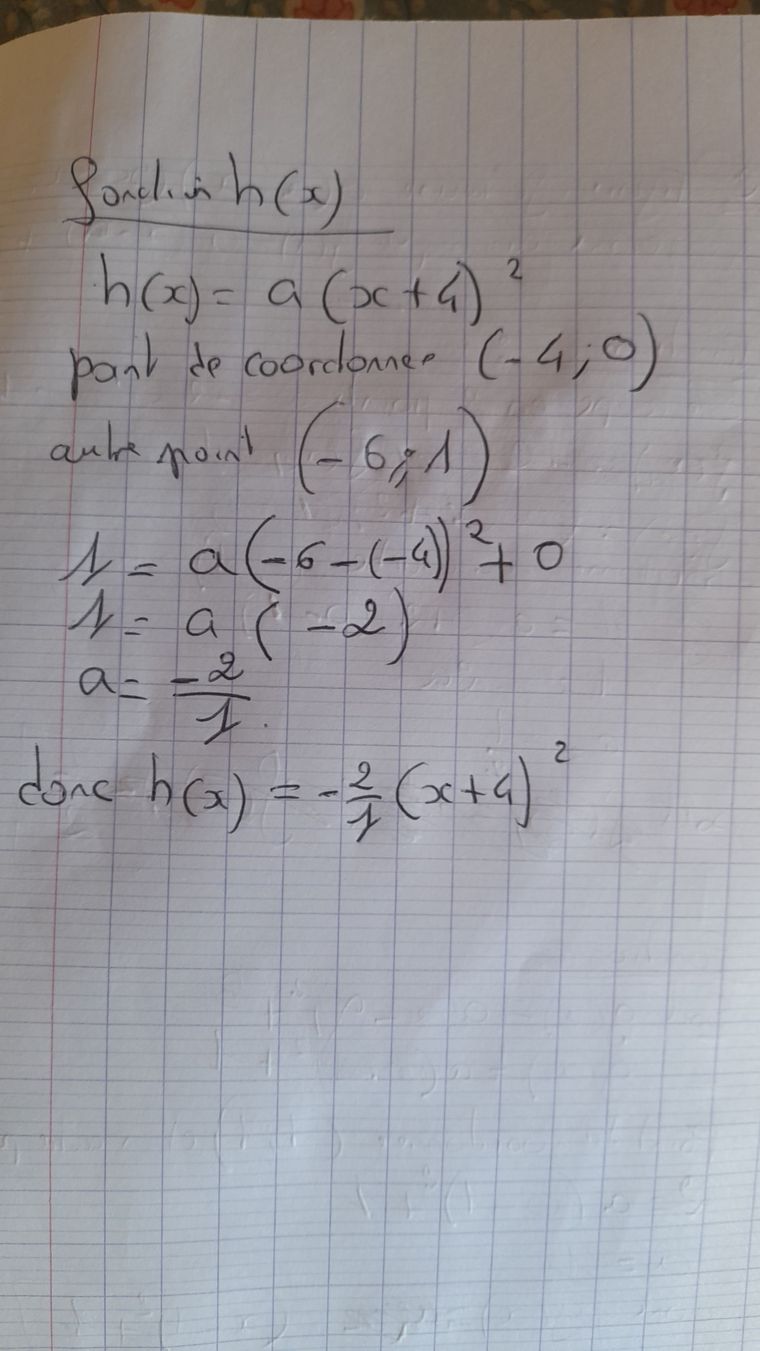 fonction h(x)
h(x) = a (x+4)²
point de coordonnée (-4;0)
autre point (-6;1)
1 = a(-6-(-4))² + 0
1 = a (-2)
a = -2/1
donc h(x) = -2/1 (x+4)²